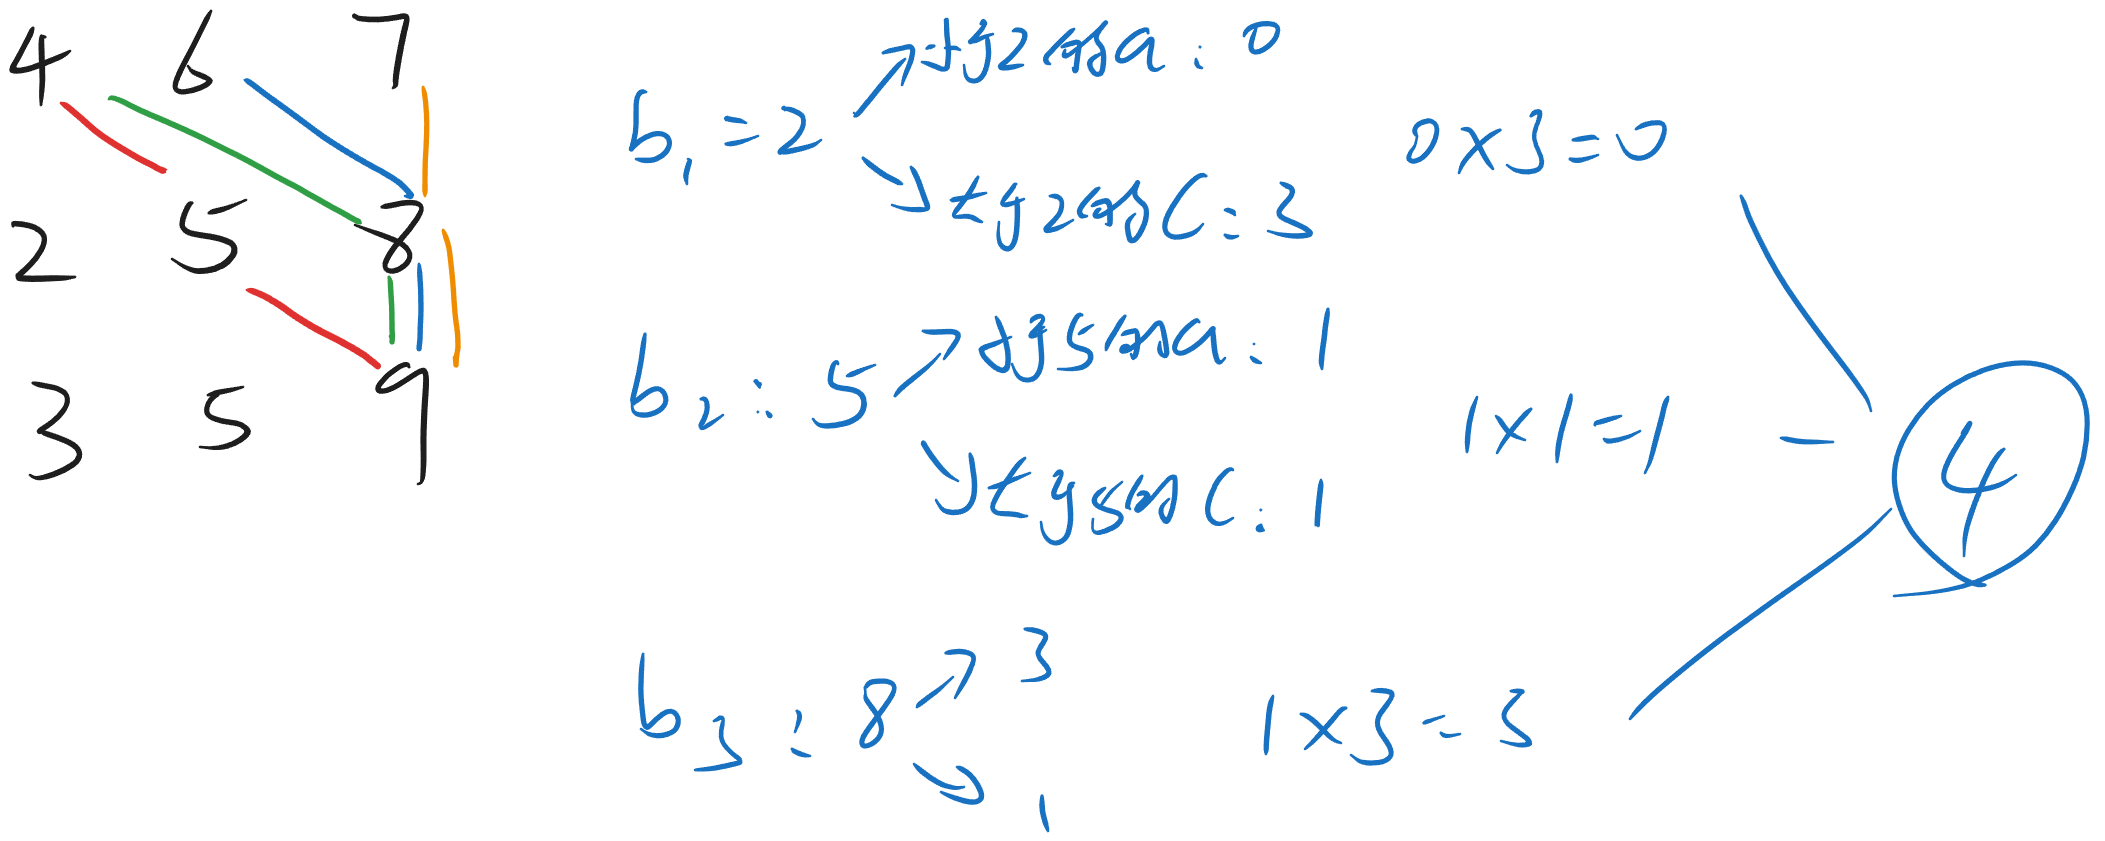 4 6 7
2 5 8
3 5 9
b₁=2
小于2的a:0
大于2的C:3
0×3=0
b₂:5
小于5的a:1
大于5的C:1
1×1=1
b₃:8
3
1
1×3=3
4